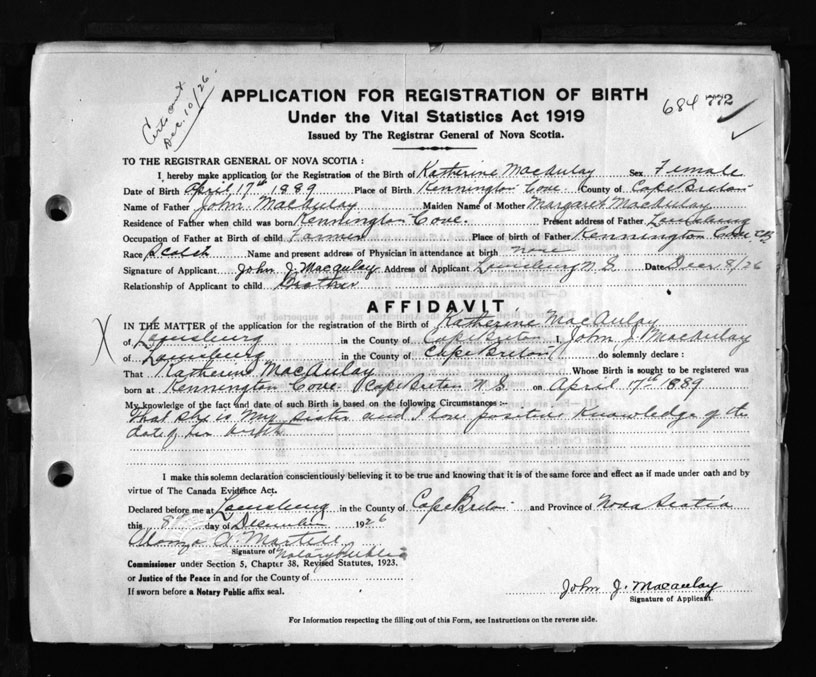 Certs out
Dec. 10/26.
APPLICATION FOR REGISTRATION OF BIRTH
684 772
Under the Vital Statistics Act 1919
Issued by The Registrar General of Nova Scotia.
TO THE REGISTRAR GENERAL OF NOVA SCOTIA:
I hereby make application for the Registration of the Birth of Katherine MacAulay Sex Female
Date of Birth April 17th 1889 Place of Birth Kennington Cove. County of Cape Breton
Name of Father John MacAulay Maiden Name of Mother Margaret MacAulay
Residence of Father when child was born Kennington Cove. Present address of Father Louisburg
Occupation of Father at Birth of child Farmer Place of birth of Father Kennington Cove
Race Scotch Name and present address of Physician in attendance at birth none
Signature of Applicant John J. Macaulay Address of Applicant Louisburg N.S. Date Decr 8/26
Relationship of Applicant to child Brother
AFFIDAVIT
IN THE MATTER of the application for the registration of the Birth of Katherine MacAulay
of Louisburg in the County of Cape Breton I, John J. MacAulay
of Louisburg in the County of Cape Breton do solemnly declare:
That Katherine MacAulay Whose Birth is sought to be registered was
born at Kennington Cove, Cape Breton N.S. on April 17th 1889
My knowledge of the fact and date of such Birth is based on the following Circumstances:-
That she is my sister and I have positive knowledge of the
date of her birth
I make this solemn declaration conscientiously believing it to be true and knowing that it is of the same force and effect as if made under oath and by
virtue of The Canada Evidence Act.
Declared before me at Louisburg in the County of Cape Breton and Province of Nova Scotia
this 8th day of December 1926
Alonzo A Martell
Signature of Notary Public
Commissioner under Section 5, Chapter 38, Revised Statutes, 1923.
or Justice of the Peace in and for the County of
If sworn before a Notary Public affix seal.
John J. Macaulay
Signature of Applicant.
For Information respecting the filling out of this Form, see Instructions on the reverse side.